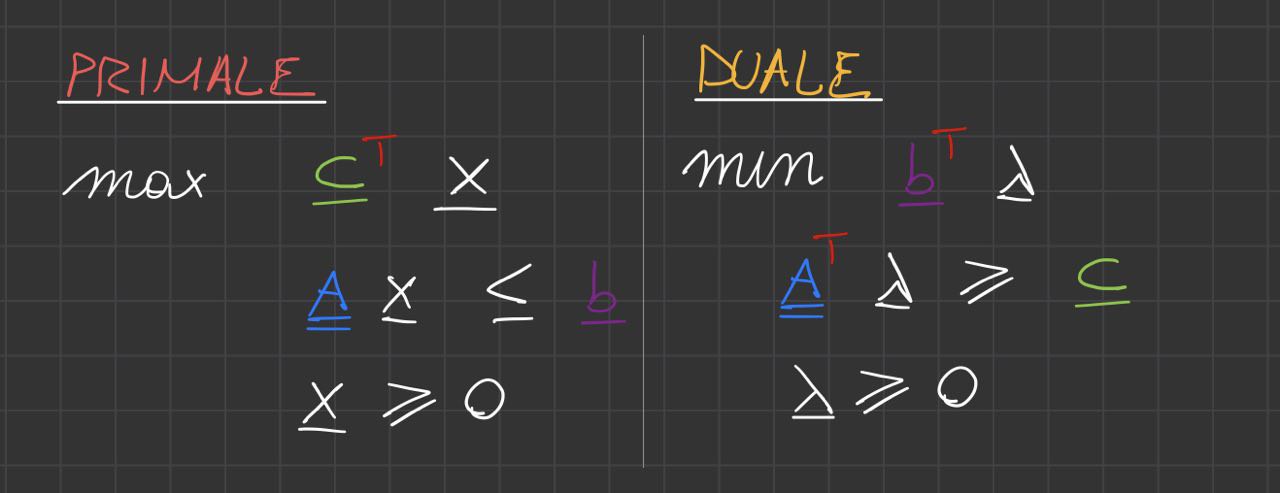 PRIMALE
max c^T x
A x ≤ b
x ≥ 0
DUALE
min b^T λ
A^T λ ≥ c
λ ≥ 0